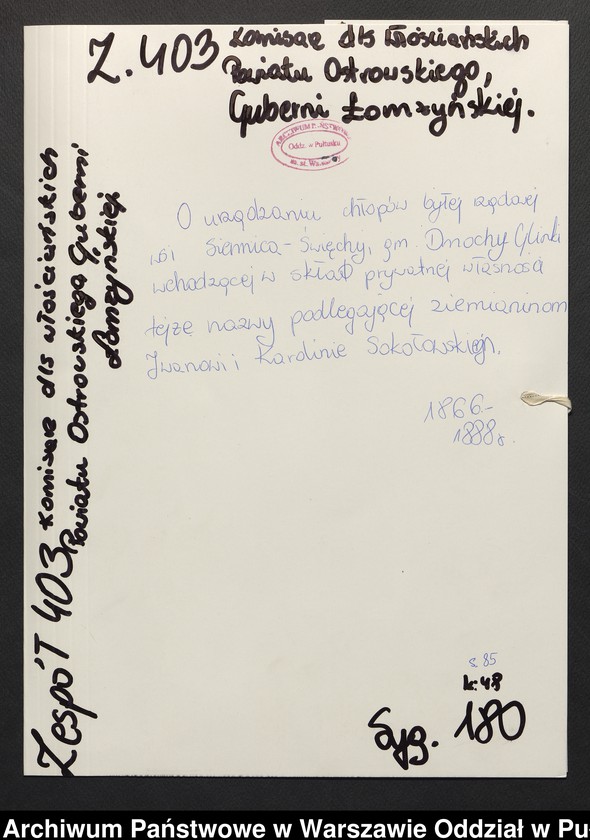 Z. 403 Komisarz dls włościańskich
Powiatu Ostrowskiego,
Guberni Łomżyńskiej.
ARCHIWUM PAŃSTWOWE
Oddz. w Pułtusku
m. st. Warszawy
O urządzaniu chłopów byłej rządowej
wsi Siennica-Święchy, gm. Dmochy Glinki
wchodzącej w skład prywatnej własności
tejże nazwy podlegającej ziemianinom
Iwanowi i Karolinie Sokołowskich.
1866-
1888r.
s. 85
k. 48
Syg. 180
Zespół 403 Komisarz dls włościańskich
Powiatu Ostrowskiego Guberni
Łomżyńskiej
Archiwum Państwowe w Warszawie Oddział w Pu